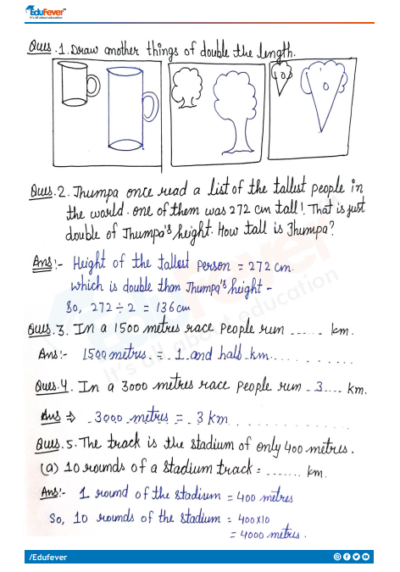 EduFever
It's all about education
Ques.1. Draw another things of double the length.
Ques.2. Thumpa once read a list of the tallest people in
the world. one of them was 272 cm tall! That is just
double of Thumpa's height. How tall is Thumpa?
Ans:- Height of the tallest person = 272 cm
which is double than Thumpa's height -
So, 272 ÷ 2 = 136 cm
Ques.3. In a 1500 metres race people run ...... km.
Ans:- 1500 metres. = .1. and half. km. . . . . . . . . .
Ques.4. In a 3000 metres race people run .3.... km.
Ans ⇒ .3000 .metres = .3 km . . . . . . . . . . .
Ques.5. The track is the stadium of only 400 metres.
(a) 10 rounds of a stadium track = ....... km.
Ans:- 1 round of the stadium = 400 metres
So, 10 rounds of the stadium = 400x10
= 4000 metres.
/Edufever